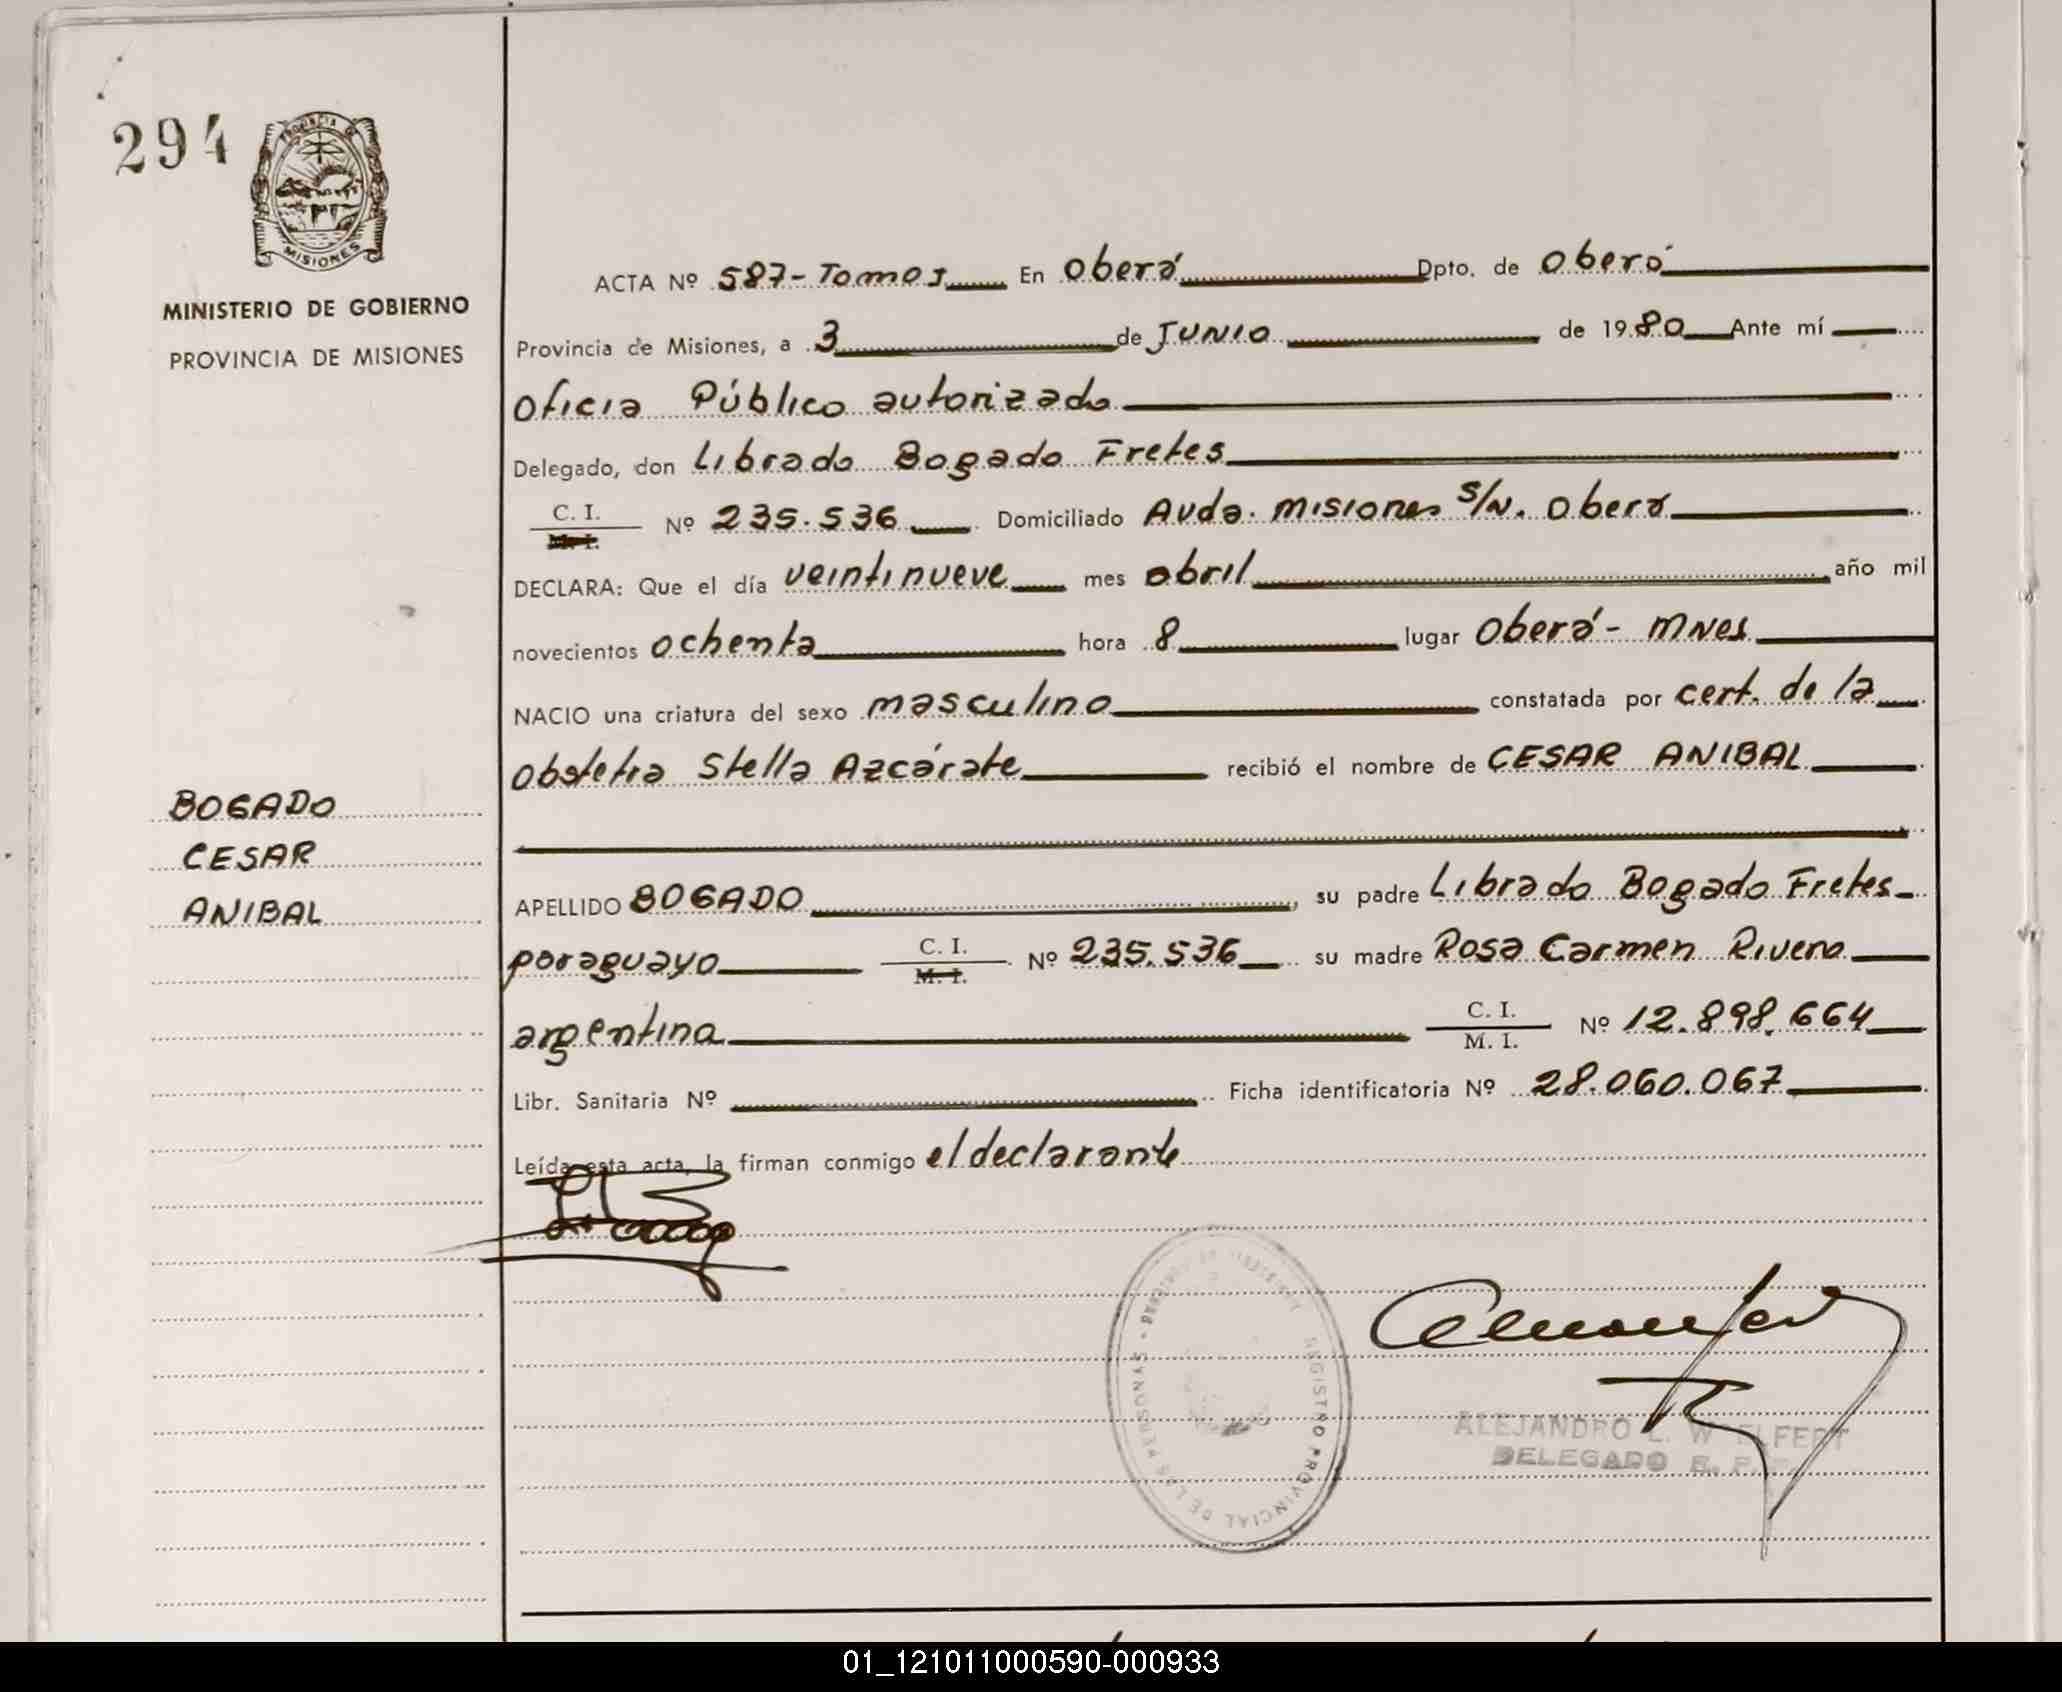 294
PROVINCIA DE
MISIONES
MINISTERIO DE GOBIERNO
PROVINCIA DE MISIONES
BOGADO
CESAR
ANIBAL
ACTA Nº 587-Tomo I En Oberá Dpto. de Oberá
Provincia de Misiones, a 3 de JUNIO de 1980 Ante mí
Oficia Público autorizado
Delegado, don Librado Bogado Fretes
C. I. M. I. Nº 235.536 Domiciliado Avda. Misiones S/N. Oberá
DECLARA: Que el día veintinueve mes abril año mil
novecientos ochenta hora 8 lugar Oberá - Mnes
NACIO una criatura del sexo masculino constatada por cert. de la
Obstetra Stella Azcárate recibió el nombre de CESAR ANIBAL
APELLIDO BOGADO, su padre Librado Bogado Fretes
paraguayo C. I. M. I. Nº 235.536 su madre Rosa Carmen Rivero
argentina C. I. M. I. Nº 12.898.664
Libr. Sanitaria Nº Ficha identificatoria Nº 28.060.067
Leída esta acta, la firman conmigo el declarante
REGISTRO PROVINCIAL DE LAS PERSONAS
ALEJANDRO L. W ELFERT
DELEGADO R. P.
01_121011000590-000933